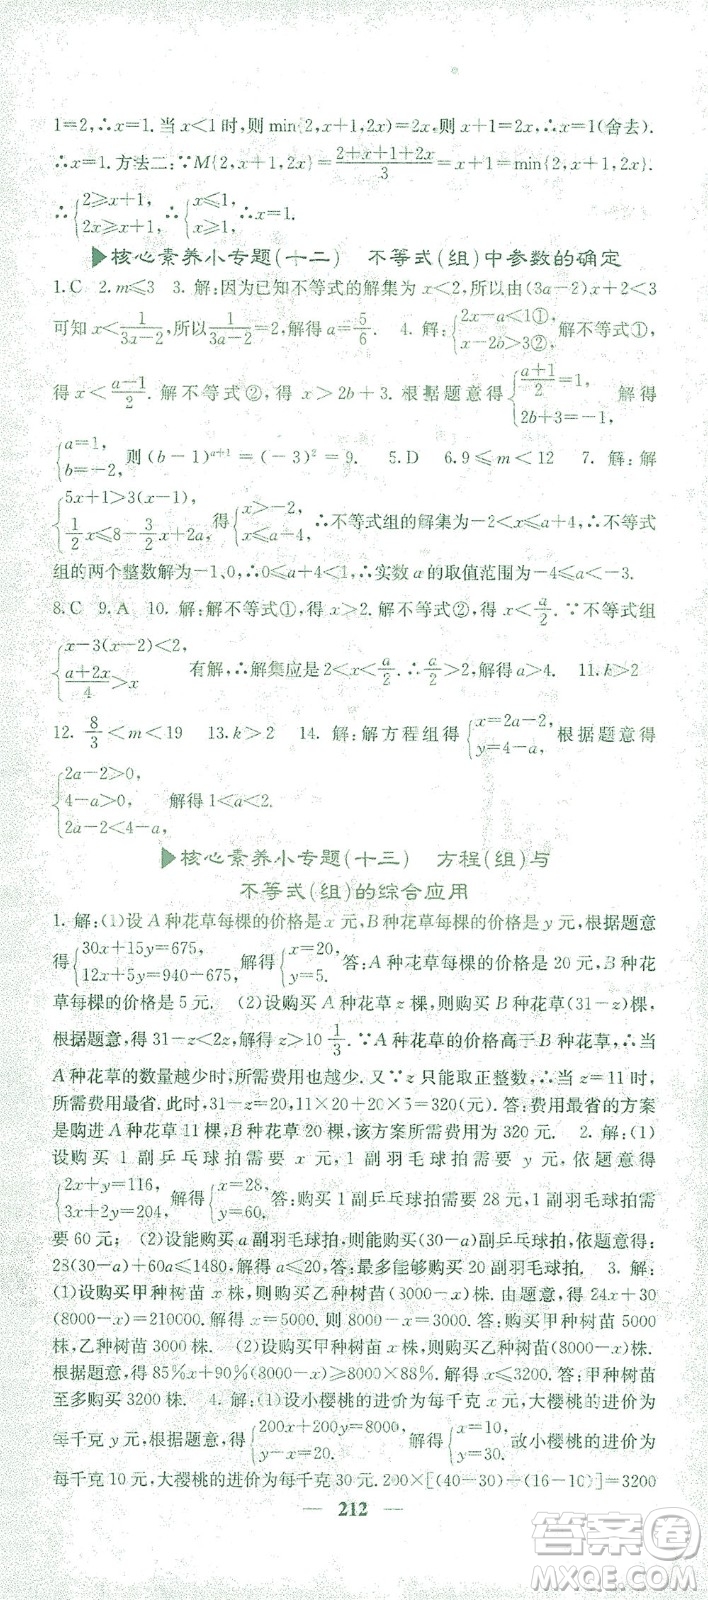 1=2,∴x=1.当x<1时,则min{2,x+1,2x}=2x,则x+1=2x,∴x=1(舍去).
∴x=1.方法二:∵M{2,x+1,2x}=(2+x+1+2x)/3=x+1=min{2,x+1,2x}.
∴{2≥x+1, 2x≥x+1, ∴{x≤1, x≥1, ∴x=1.
▶核心素养小专题(十二) 不等式(组)中参数的确定
1.C 2.m≤3 3.解:因为已知不等式的解集为x<2,所以由(3a-2)x+2<3
可知x<1/(3a-2),所以1/(3a-2)=2,解得a=5/6. 4.解:{2x-a<1①, x-2b>3②,解不等式①,
得x<(a+1)/2.解不等式②,得x>2b+3.根据题意得{(a+1)/2=1, 2b+3=-1, 解得
{a=1, b=-2,则(b-1)^(a+1)=(-3)²=9. 5.D 6.9≤m<12 7.解:解
{5x+1>3(x-1), 1/2x≤8-3/2x+2a,得{x>-2, x≤a+4,∴不等式组的解集为-2<x≤a+4,∴不等式
组的两个整数解为-1、0,∴0≤a+4<1,∴实数a的取值范围为-4≤a<-3.
8.C 9.A 10.解:解不等式①,得x>2.解不等式②,得x<a/2.∵不等式组
{x-3(x-2)<2, (a+2x)/4>x 有解,∴解集应是2<x<a/2.∴a/2>2,解得a>4. 11.k>2
12. 8/3<m<19 13.k>2 14.解:解方程组得{x=2a-2, y=4-a,根据题意得
{2a-2>0, 4-a>0, 2a-2<4-a, 解得1<a<2.
▶核心素养小专题(十三) 方程(组)与
不等式(组)的综合应用
1.解:(1)设A种花草每棵的价格是x元,B种花草每棵的价格是y元,根据题意
得{30x+15y=675, 12x+5y=940-675,解得{x=20, y=5.答:A种花草每棵的价格是20元,B种花
草每棵的价格是5元. (2)设购买A种花草z棵,则购买B种花草(31-z)棵,
根据题意,得31-z<2z,解得z>10 1/3.∵A种花草的价格高于B种花草,∴当
A种花草的数量越少时,所需费用也越少.又∵z只能取正整数,∴当z=11时,
所需费用最省.此时,31-z=20,11×20+20×5=320(元).答:费用最省的方案
是购进A种花草11棵,B种花草20棵,该方案所需费用为320元. 2.解:(1)
设购买1副乒乓球拍需要x元,1副羽毛球拍需要y元,依题意得
{2x+y=116, 3x+2y=204,解得{x=28, y=60.答:购买1副乒乓球拍需要28元,1副羽毛球拍需
要60元; (2)设能购买a副羽毛球拍,则能购买(30-a)副乒乓球拍,依题意得:
28(30-a)+60a≤1480,解得a≤20,答:这所中学最多能够购买20副羽毛球拍. 3.解:
(1)设购买甲种树苗x株,则购买乙种树苗(8000-x)株.由题意,得24x+30
(8000-x)=210000.解得x=5000.则8000-x=3000.答:购买甲种树苗5000
株,乙种树苗3000株. (2)设购买甲种树苗x株,则购买乙种树苗(8000-x)株.
根据题意,得85%x+90%(8000-x)≥8000×88%.解得x≤3200.答:甲种树苗
至多购买3200株. 4.解:(1)设小樱桃的进价为每千克x元,大樱桃的进价为
每千克y元,根据题意得{200x+200y=8000, y-x=20. 解得{x=10, y=30.故小樱桃的进价为
每千克10元,大樱桃的进价为每千克30元.200×[(40-30)+(16-10)]=3200
— 212 —
答案圈
MXQE.COM